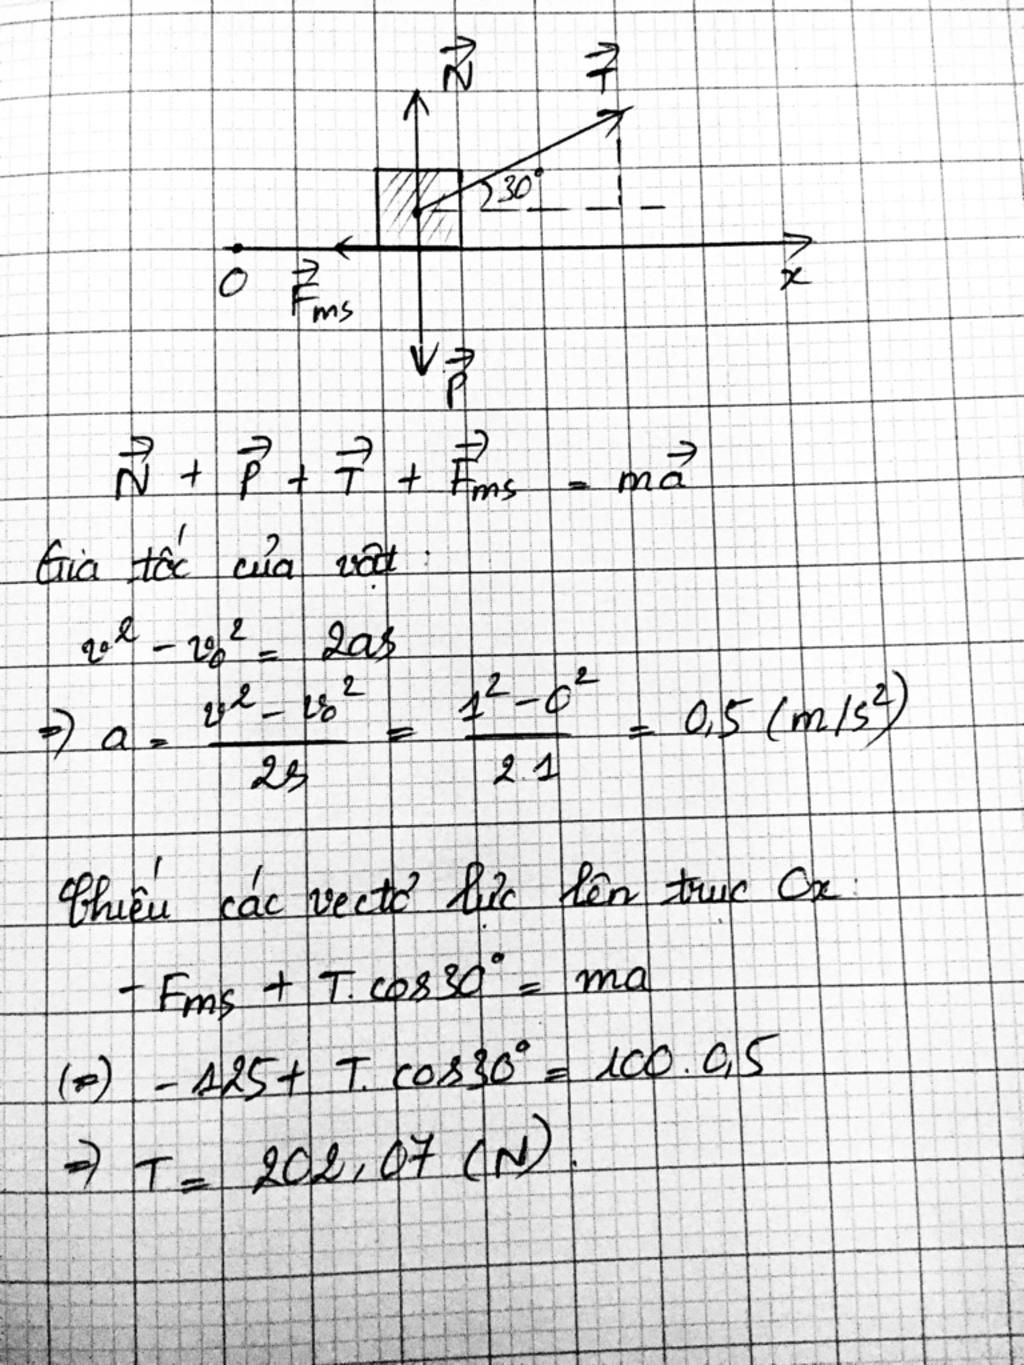 N⃗ T⃗
30°
O F⃗ms x
P⃗
N⃗ + P⃗ + T⃗ + F⃗ms = ma⃗
Gia tốc của vật:
v² - v₀² = 2as
=> a = (v² - v₀²)/2s = (1² - 0²)/2.1 = 0,5 (m/s²)
Chiếu các vectơ lực lên trục Ox:
- Fms + T.cos30° = ma
(=) - 125 + T.cos30° = 100.0,5
=> T = 202,07 (N).